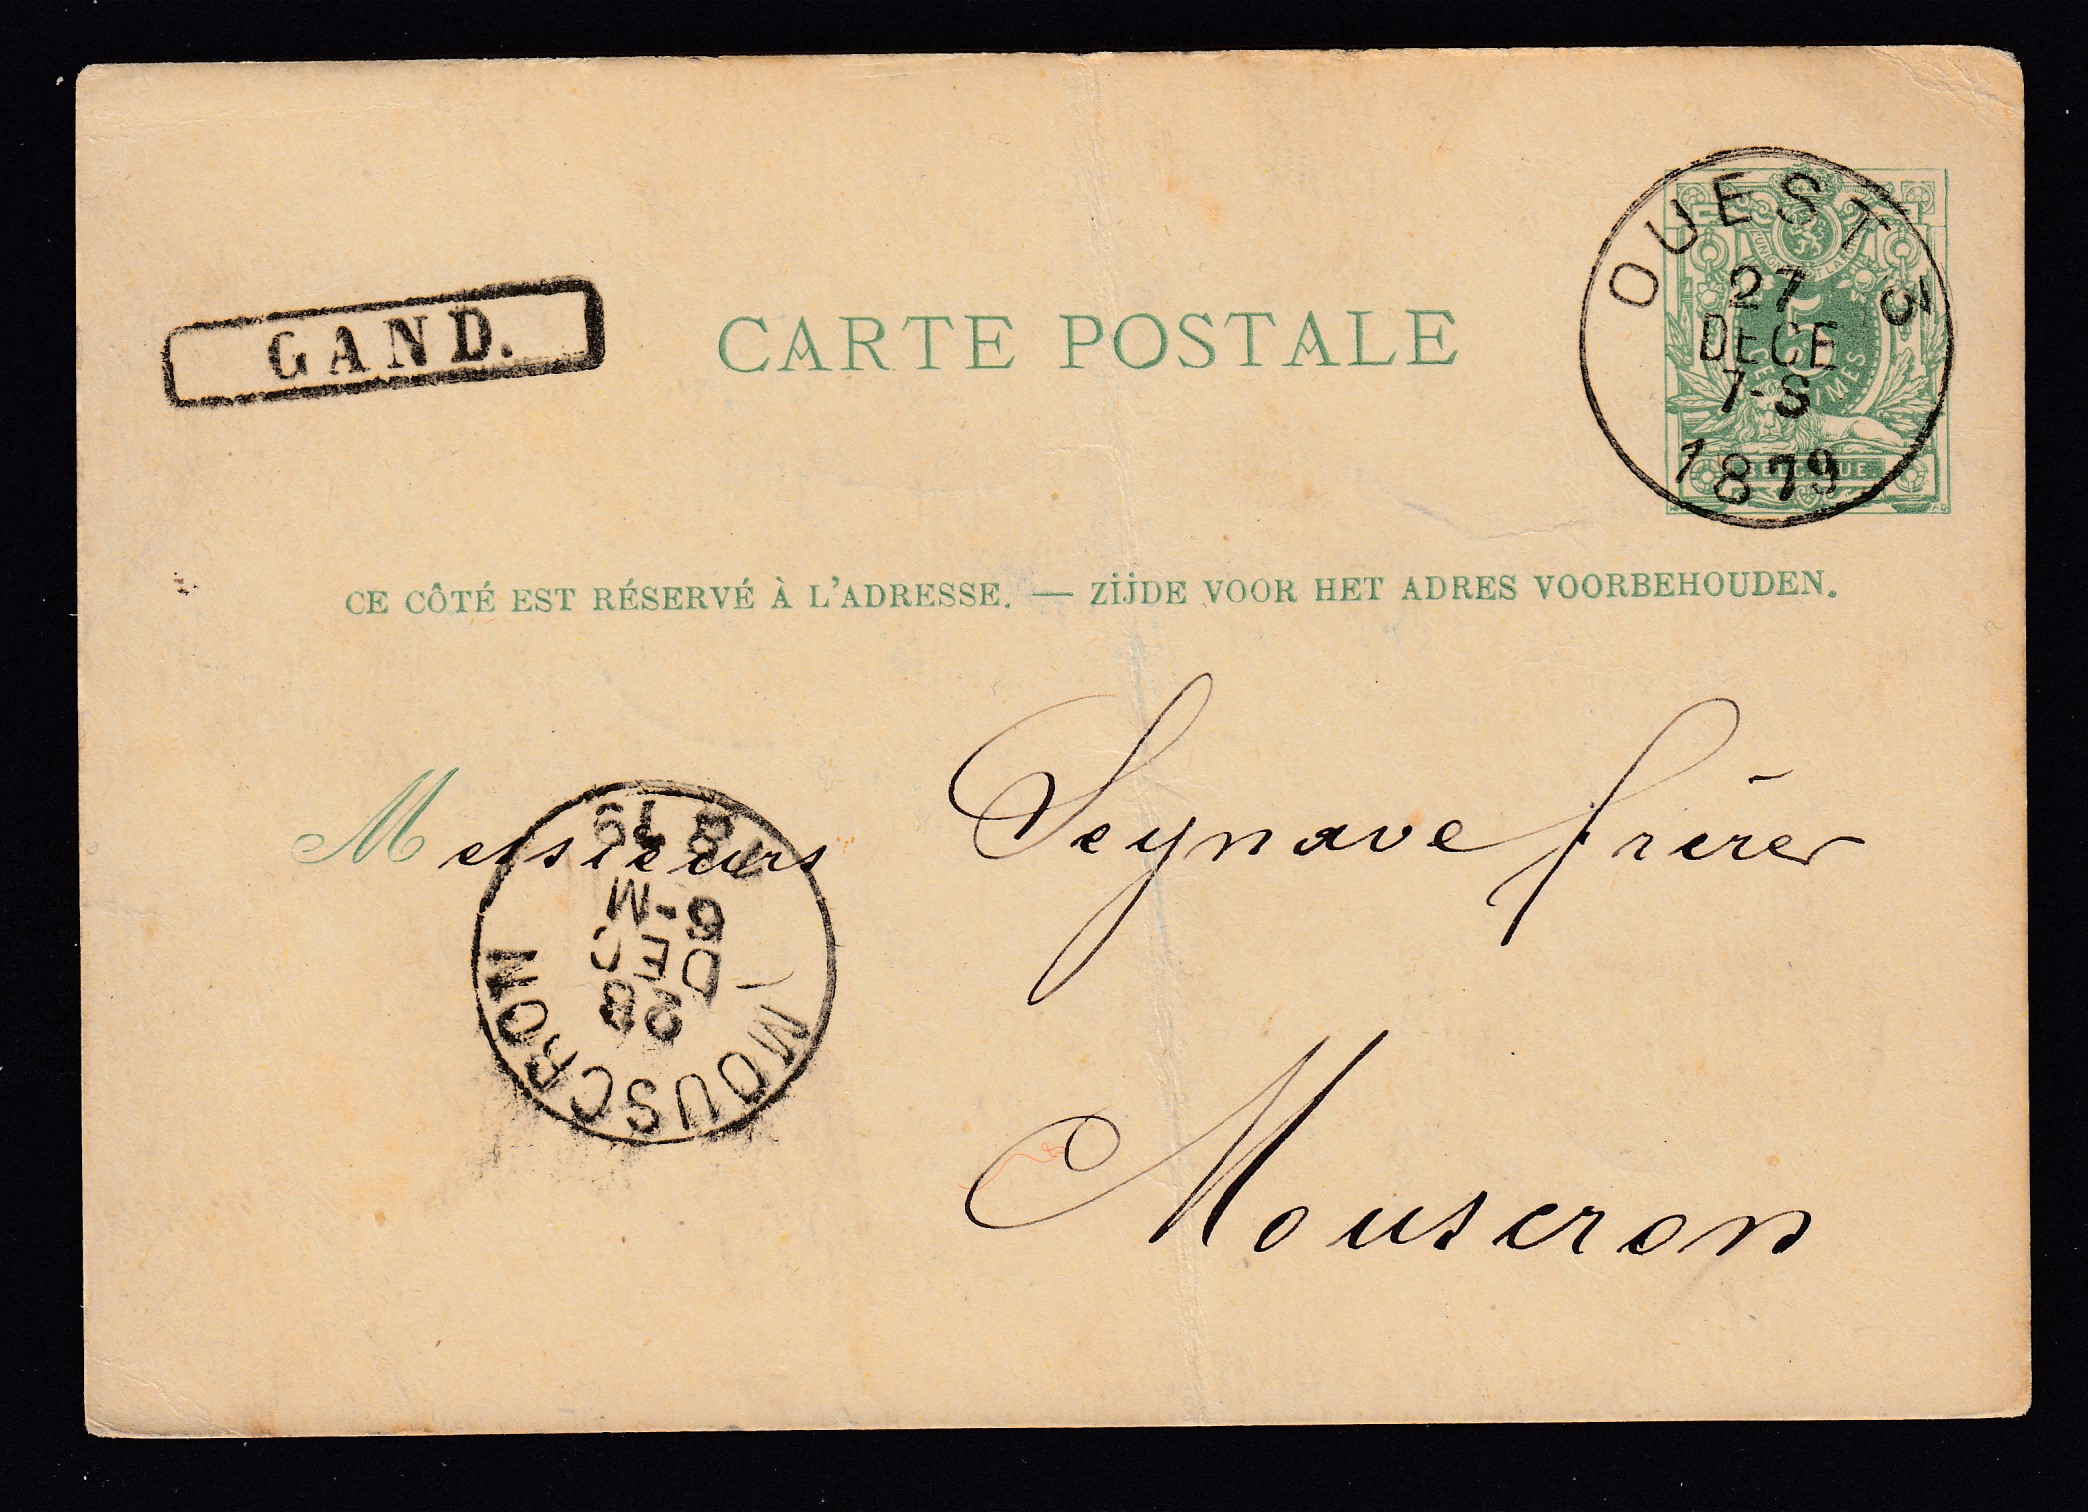 GAND.
CARTE POSTALE
OUEST 3
27
DECE
7-S
1879
5
BELGIQUE
CE CÔTÉ EST RÉSERVÉ À L'ADRESSE. — ZIJDE VOOR HET ADRES VOORBEHOUDEN.
Messieurs Seynave frères
MOUSCRON
28
DEC
6-M
1879
Mouscron